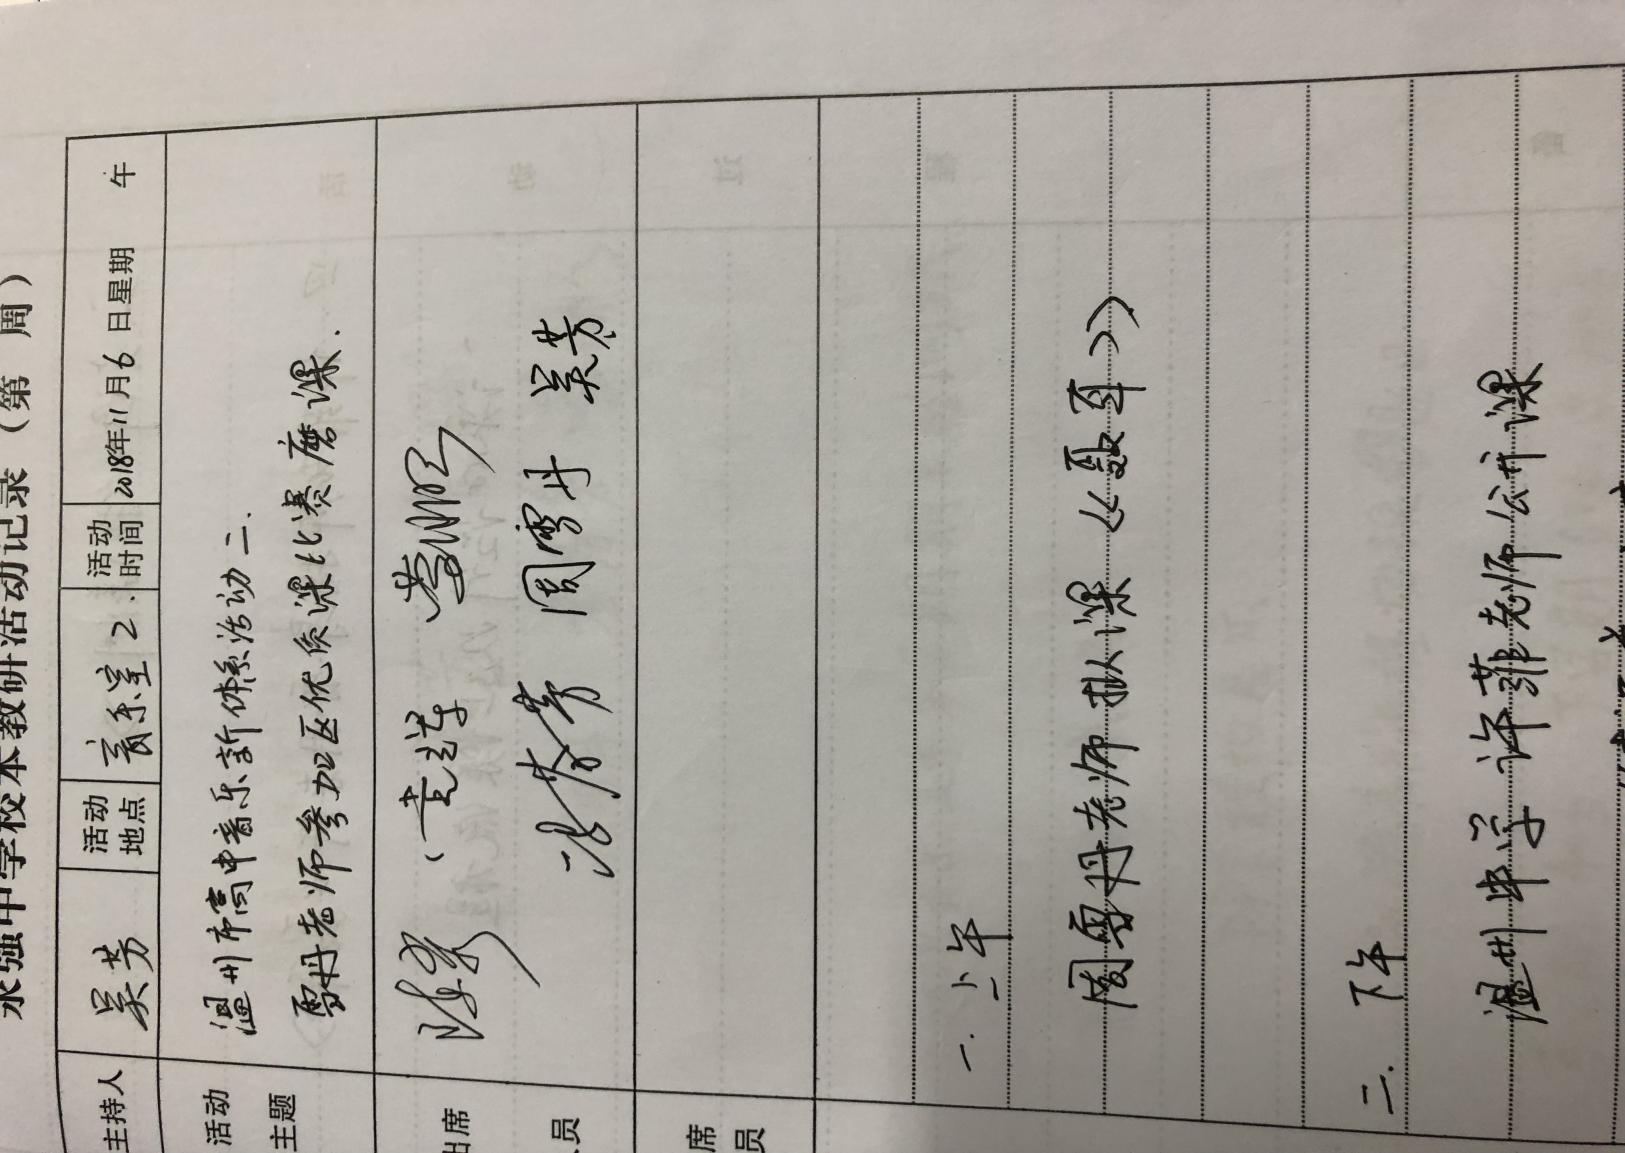 永强中学校本教研活动记录（第 周）
主持人 吴芳 活动地点 音乐室2. 活动时间 2018年11月6日星期 午
活动主题 温州市高中音乐新体系活动二.
雪丹老师参加区优质课比赛磨课.
出席 人员
周雪丹 吴芳
席 员
一. 上午
周雪丹老师 拟课《聂耳》
二. 下午
温州中学 许菲老师公开课